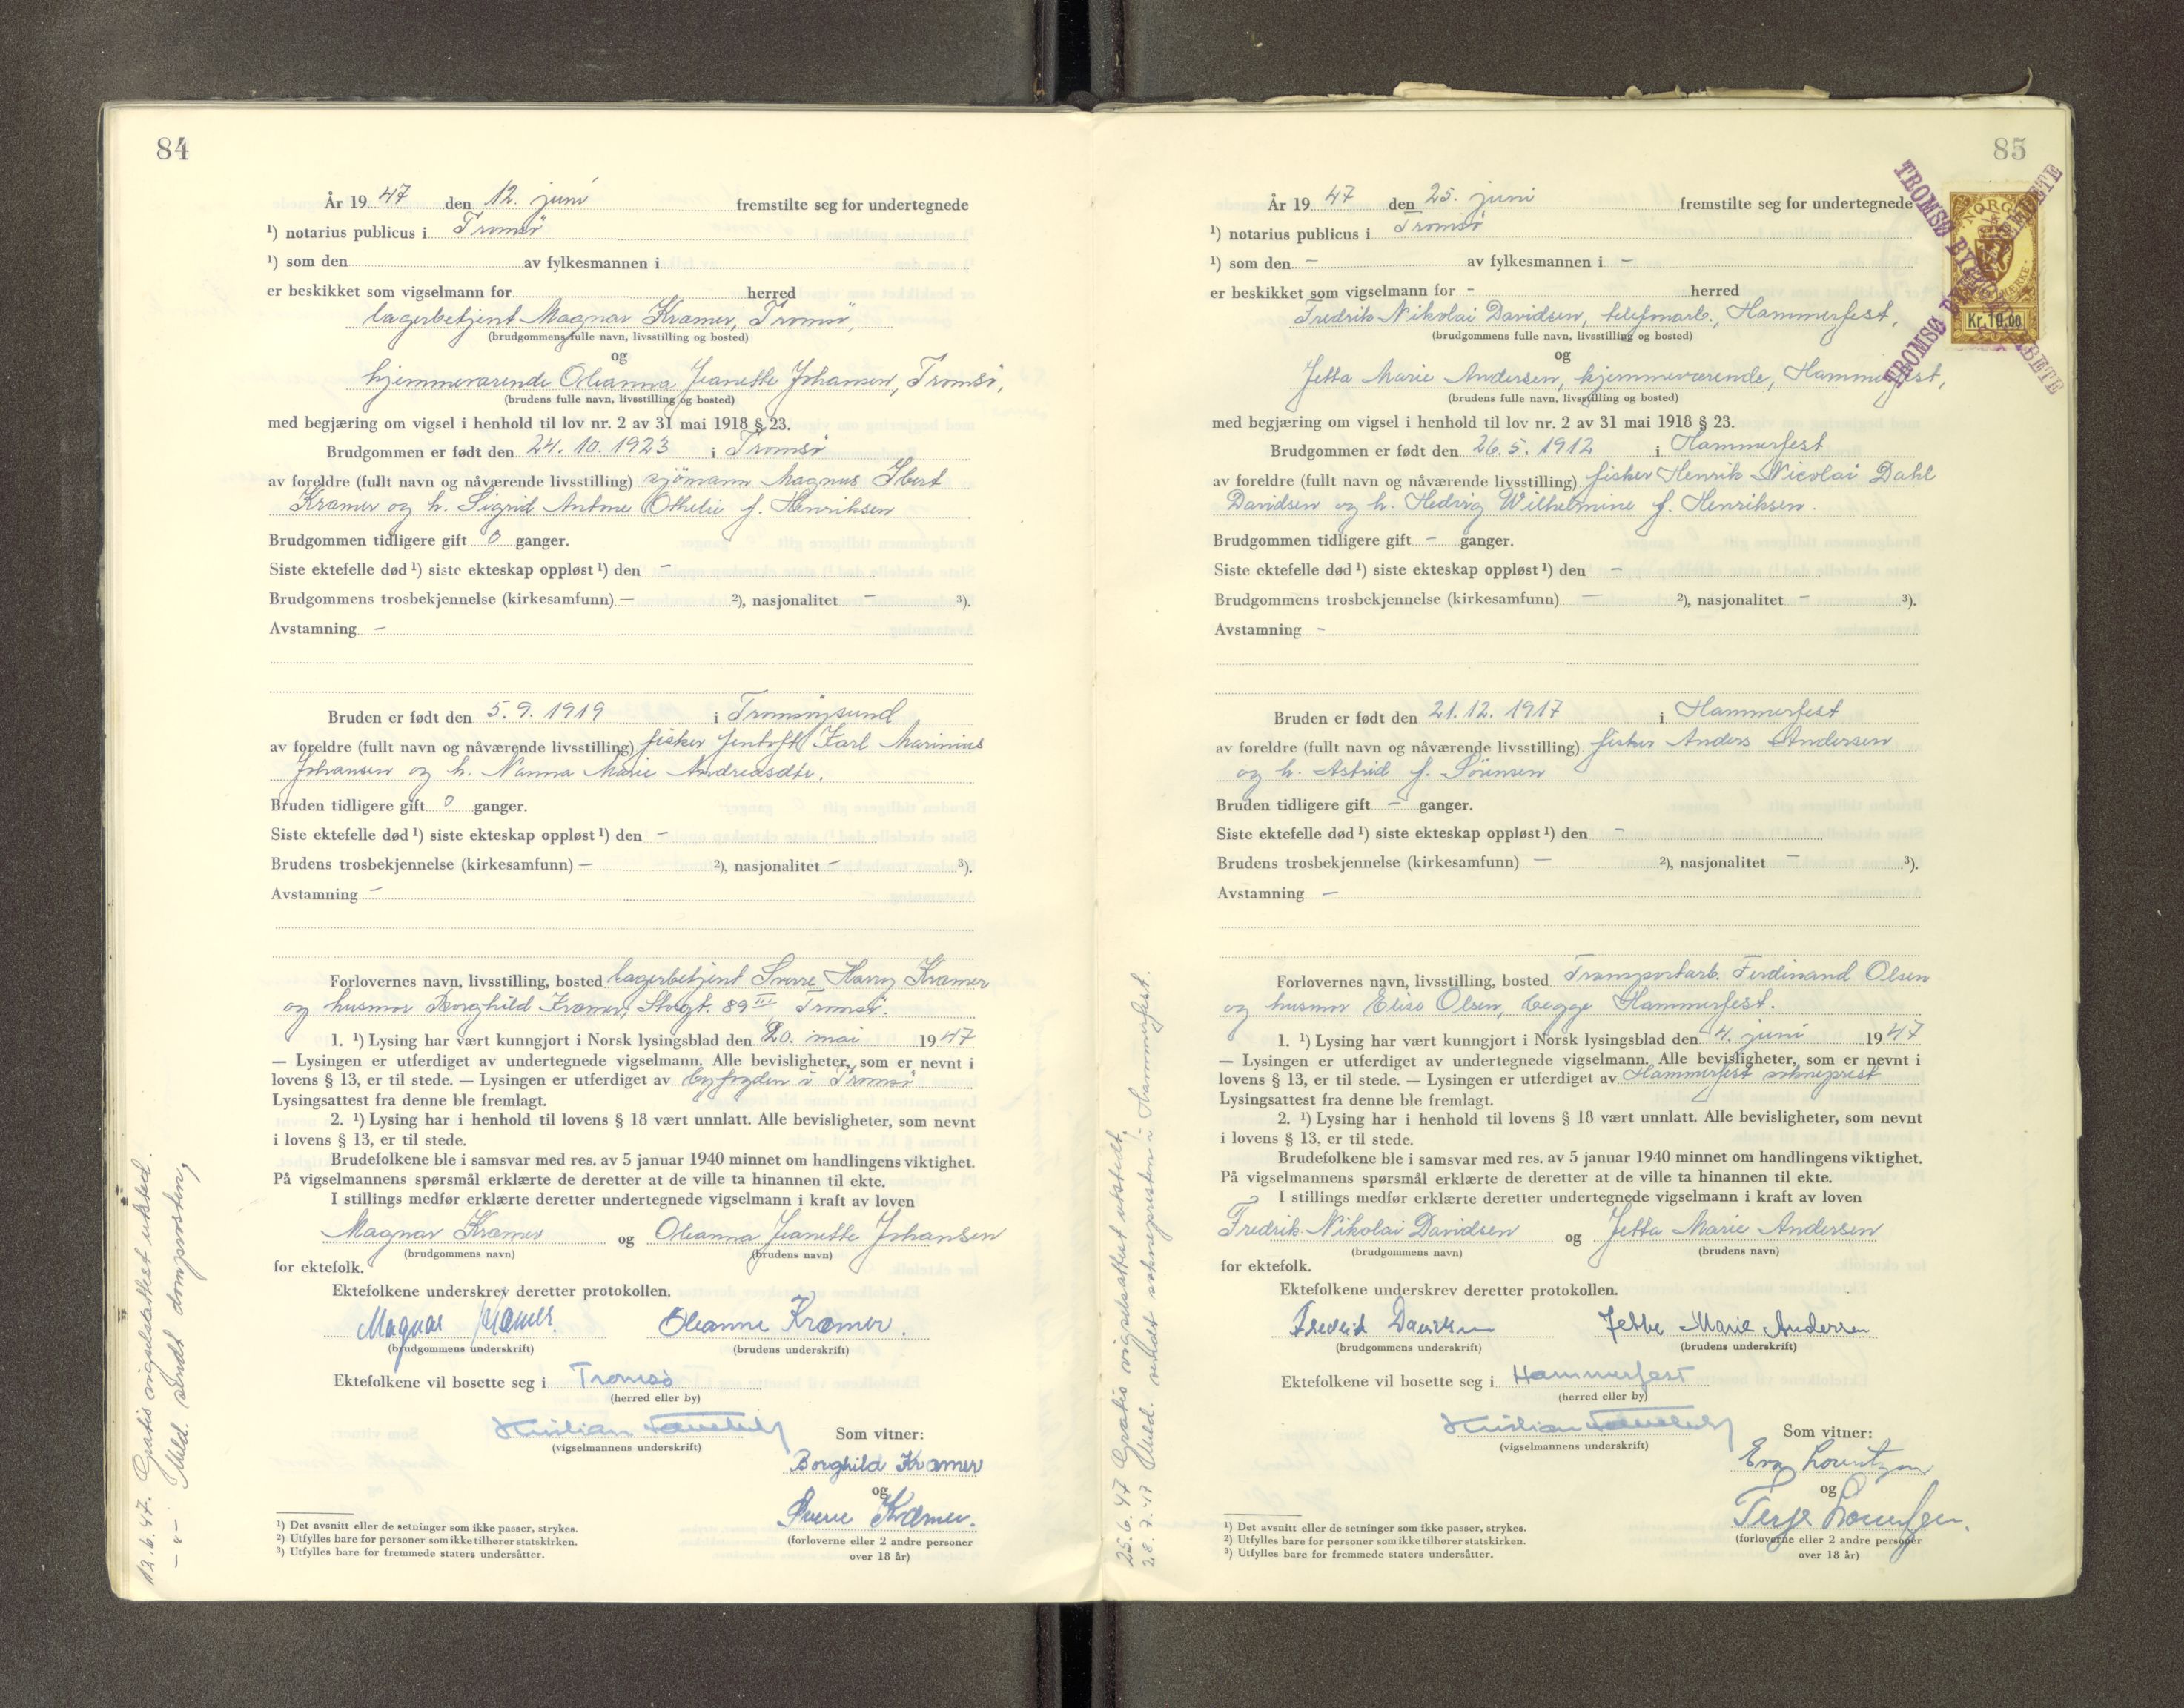 84
År 1947 den 12. juni fremstilte seg for undertegnede
¹) notarius publicus i Tromsö
¹) som den av fylkesmannen i
er beskikket som vigselmann for herred
lagerbetjent Magnar Kramer, Tromsö,
(brudgommens fulle navn, livsstilling og bosted)
og
hjemmeværende Oleanna Jeanette Johansen, Tromsö,
(brudens fulle navn, livsstilling og bosted)
med begjæring om vigsel i henhold til lov nr. 2 av 31 mai 1918 § 23.
Brudgommen er født den 24. 10. 1923 i Tromsö
av foreldre (fullt navn og nåværende livsstilling) sjömann Magnus Ibert
Kramer og h. Sigrid Antone Othelie f. Henriksen
Brudgommen tidligere gift 0 ganger.
Siste ektefelle død ¹) siste ekteskap oppløst ¹) den –
Brudgommens trosbekjennelse (kirkesamfunn) – ²), nasjonalitet – ³).
Avstamning –
Bruden er født den 5. 9. 1919 i Tromsöysund
av foreldre (fullt navn og nåværende livsstilling) fisker Jentoft Karl Marinius
Johansen og h. Nanna Marie Andreasdtr.
Bruden tidligere gift 0 ganger.
Siste ektefelle død ¹) siste ekteskap oppløst ¹) den –
Brudens trosbekjennelse (kirkesamfunn) – ²), nasjonalitet – ³).
Avstamning –
Forlovernes navn, livsstilling, bosted lagerbetjent Sverre Harry Kramer
og husmor Borghild Kramer, Storgt. 89 III Tromsö.
1. ¹) Lysing har vært kunngjort i Norsk lysingsblad den 20. mai 1947
— Lysingen er utferdiget av undertegnede vigselmann. Alle bevisligheter, som er nevnt i
lovens § 13, er til stede. — Lysingen er utferdiget av byfogden i Tromsö
Lysingsattest fra denne ble fremlagt.
2. ¹) Lysing har i henhold til lovens § 18 vært unnlatt. Alle bevisligheter, som nevnt
i lovens § 13, er til stede.
Brudefolkene ble i samsvar med res. av 5 januar 1940 minnet om handlingens viktighet.
På vigselmannens spørsmål erklærte de deretter at de ville ta hinannen til ekte.
I stillings medfør erklærte deretter undertegnede vigselmann i kraft av loven
Magnar Kramer og Oleanna Jeanette Johansen
(brudgommens navn) (brudens navn)
for ektefolk.
Ektefolkene underskrev deretter protokollen.
Magnar Kramer. Oleanne Kramer.
(brudgommens underskrift) (brudens underskrift)
Ektefolkene vil bosette seg i Tromsö
(herred eller by)
(vigselmannens underskrift)
Som vitner:
Borghild Kramer
og
Sverre Kramer.
(forloverne eller 2 andre personer
over 18 år)
¹) Det avsnitt eller de setninger som ikke passer, strykes.
²) Utfylles bare for personer som ikke tilhører statskirken.
³) Utfylles bare for fremmede staters undersåtter.
12.6.47. Gratis vigselsattest utsted.
– " – Meld. sendt domprosten,
85
TROMSØ BYFOGDEMBETE
TROMSØ BYFOGDEMBETE
NORGE
Kr. 10.00
År 1947 den 25. juni fremstilte seg for undertegnede
¹) notarius publicus i Tromsö
¹) som den – av fylkesmannen i –
er beskikket som vigselmann for – herred
Fredrik Nikolai Davidsen, telefonarb., Hammerfest,
(brudgommens fulle navn, livsstilling og bosted)
og
Jetta Marie Andersen, hjemmeværende, Hammerfest,
(brudens fulle navn, livsstilling og bosted)
med begjæring om vigsel i henhold til lov nr. 2 av 31 mai 1918 § 23.
Brudgommen er født den 26. 5. 1912 i Hammerfest
av foreldre (fullt navn og nåværende livsstilling) fisker Henrik Nicolai Dahl
Davidsen og h. Hedvig Wilhelmine f. Henriksen.
Brudgommen tidligere gift – ganger.
Siste ektefelle død ¹) siste ekteskap oppløst ¹) den –
Brudgommens trosbekjennelse (kirkesamfunn) – ²), nasjonalitet – ³).
Avstamning –
Bruden er født den 21. 12. 1917 i Hammerfest
av foreldre (fullt navn og nåværende livsstilling) fisker Anders Andersen
og h. Astrid f. Sörensen
Bruden tidligere gift – ganger.
Siste ektefelle død ¹) siste ekteskap oppløst ¹) den –
Brudens trosbekjennelse (kirkesamfunn) – ²), nasjonalitet – ³).
Avstamning –
Forlovernes navn, livsstilling, bosted Transportarb. Ferdinand Olsen
og husmor Elise Olsen, begge Hammerfest.
1. ¹) Lysing har vært kunngjort i Norsk lysingsblad den 4. juni 1947
— Lysingen er utferdiget av undertegnede vigselmann. Alle bevisligheter, som er nevnt i
lovens § 13, er til stede. — Lysingen er utferdiget av Hammerfest sokneprest
Lysingsattest fra denne ble fremlagt.
2. ¹) Lysing har i henhold til lovens § 18 vært unnlatt. Alle bevisligheter, som nevnt
i lovens § 13, er til stede.
Brudefolkene ble i samsvar med res. av 5 januar 1940 minnet om handlingens viktighet.
På vigselmannens spørsmål erklærte de deretter at de ville ta hinannen til ekte.
I stillings medfør erklærte deretter undertegnede vigselmann i kraft av loven
Fredrik Nikolai Davidsen og Jetta Marie Andersen
(brudgommens navn) (brudens navn)
for ektefolk.
Ektefolkene underskrev deretter protokollen.
Fredrik Davidsen Jetta Marie Andersen
(brudgommens underskrift) (brudens underskrift)
Ektefolkene vil bosette seg i Hammerfest
(herred eller by)
(vigselmannens underskrift)
Som vitner:
Eva Lorentzen
og
Terje Lorentzen.
(forloverne eller 2 andre personer
over 18 år)
¹) Det avsnitt eller de setninger som ikke passer, strykes.
²) Utfylles bare for personer som ikke tilhører statskirken.
³) Utfylles bare for fremmede staters undersåtter.
25.6.47 Gratis vigselsattest utstedt,
28.7.47 Meld. sendt sokneprestem i Hammerfest.